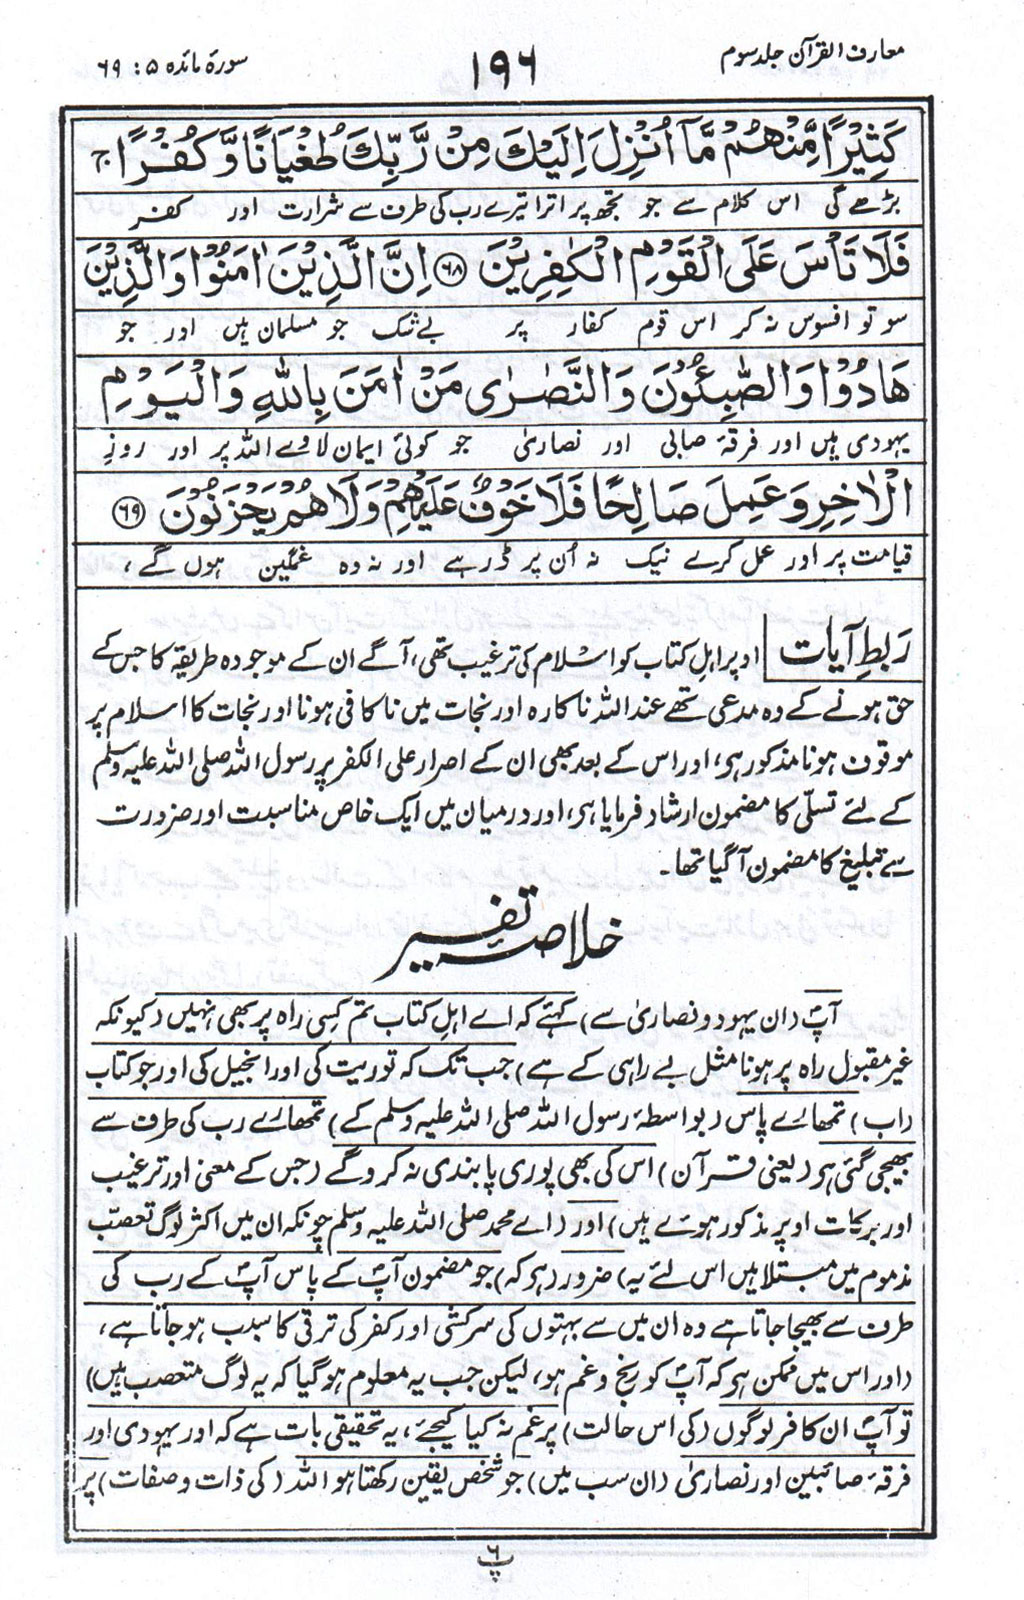 معارف القرآن جلد سوم
۱۹۶
سورۂ مائدہ ۵ : ۶۹
كَثِيْرًا مِّنْهُمْ مَّآ اُنْزِلَ اِلَيْكَ مِنْ رَّبِّكَ طُغْيَانًا وَّ كُفْرًا ۚ
بڑھے گی اس کلام سے جو تجھ پر اترا تیرے رب کی طرف سے شرارت اور کفر
فَلَا تَاْسَ عَلَى الْقَوْمِ الْكٰفِرِيْنَ ﴿۶۸﴾ اِنَّ الَّذِيْنَ اٰمَنُوْا وَالَّذِيْنَ
سو تو افسوس نہ کر اس قوم کفار پر بے شک جو مسلمان ہیں اور جو
هَادُوْا وَالصّٰبِـُٔوْنَ وَالنَّصٰرٰى مَنْ اٰمَنَ بِاللّٰهِ وَالْيَوْمِ
یہودی ہیں اور فرقہ صابی اور نصاریٰ جو کوئی ایمان لاوے اللہ پر اور روزِ
الْاٰخِرِ وَعَمِلَ صَالِحًا فَلَا خَوْفٌ عَلَيْهِمْ وَلَا هُمْ يَحْزَنُوْنَ ﴿۶۹﴾
قیامت پر اور عمل کرے نیک نہ اُن پر ڈر ہے اور نہ وہ غمگین ہوں گے ،
ربطِ آیات اوپر اہلِ کتاب کو اسلام کی ترغیب تھی، آگے ان کے موجودہ طریقہ کا جس کے
حق ہونے کے وہ مدعی تھے عند اللہ ناکارہ اور نجات میں ناکافی ہونا اور نجات کا اسلام پر
موقوف ہونا مذکور ہر، اور اس کے بعد بھی ان کے اصرار علی الکفر پر رسول اللہ صلی اللہ علیہ وسلم
کے لئے تسلّی کا مضمون ارشاد فرمایا ہر، اور درمیان میں ایک خاص مناسبت اور ضرورت
سے تبلیغ کا مضمون آگیا تھا۔
خلاصۂ تفسیر
آپؐ (ان یہود و نصاریٰ سے) کہئے کہ اے اہلِ کتاب تم کسی راہ پر بھی نہیں (کیونکہ
غیر مقبول راہ پر ہونا مثل بے راہی کے ہے) جب تک کہ توریت کی اور انجیل کی اور جو کتاب
(اب) تمھارے پاس (بواسطۂ رسول اللہ صلی اللہ علیہ وسلم کے) تمھارے رب کی طرف سے
بھیجی گئی ہر (یعنی قرآن) اس کی بھی پوری پابندی نہ کروگے (جس کے معنی اور ترغیب
اور برکات اوپر مذکور ہوئے ہیں) اور (اے محمد صلی اللہ علیہ وسلم چونکہ ان میں اکثر لوگ تعصّب
مذموم میں مبتلا ہیں اس لئے یہ) ضرور (ہر کہ) جو مضمون آپؐ کے پاس آپؐ کے رب کی
طرف سے بھیجا جاتا ہے وہ ان میں سے بہتوں کی سرکشی اور کفر کی ترقی کا سبب ہو جاتا ہے،
(اور اس میں ممکن ہر کہ آپؐ کو رنج و غم ہو، لیکن جب یہ معلوم ہوگیا کہ یہ لوگ متعصب ہیں)
تو آپؐ ان کافر لوگوں (کی اس حالت) پر غم نہ کیا کیجئے، یہ تحقیقی بات ہے کہ اور یہودی اور
فرقۂ صائبین اور نصاریٰ (ان سب میں) جو شخص یقین رکھتا ہو اللہ (کی ذات و صفات) پر